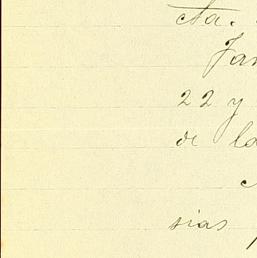 cta.
Jan
22 y
de la
sias